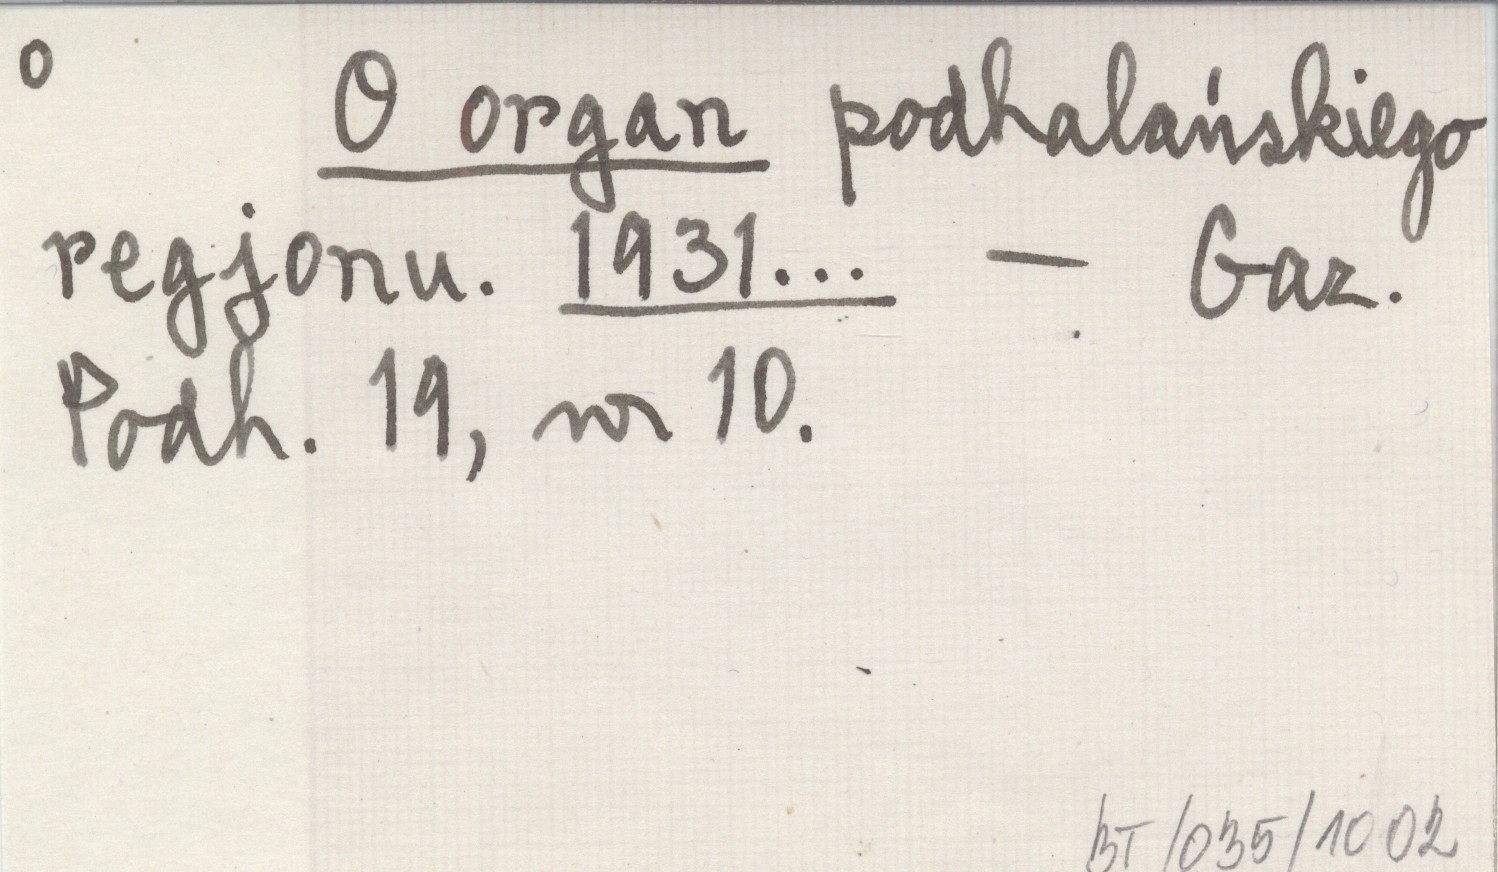 o
O organ podhalańskiego
regjonu. 1931... — Gaz.
Podh. 19, nr 10.
BT/035/1002